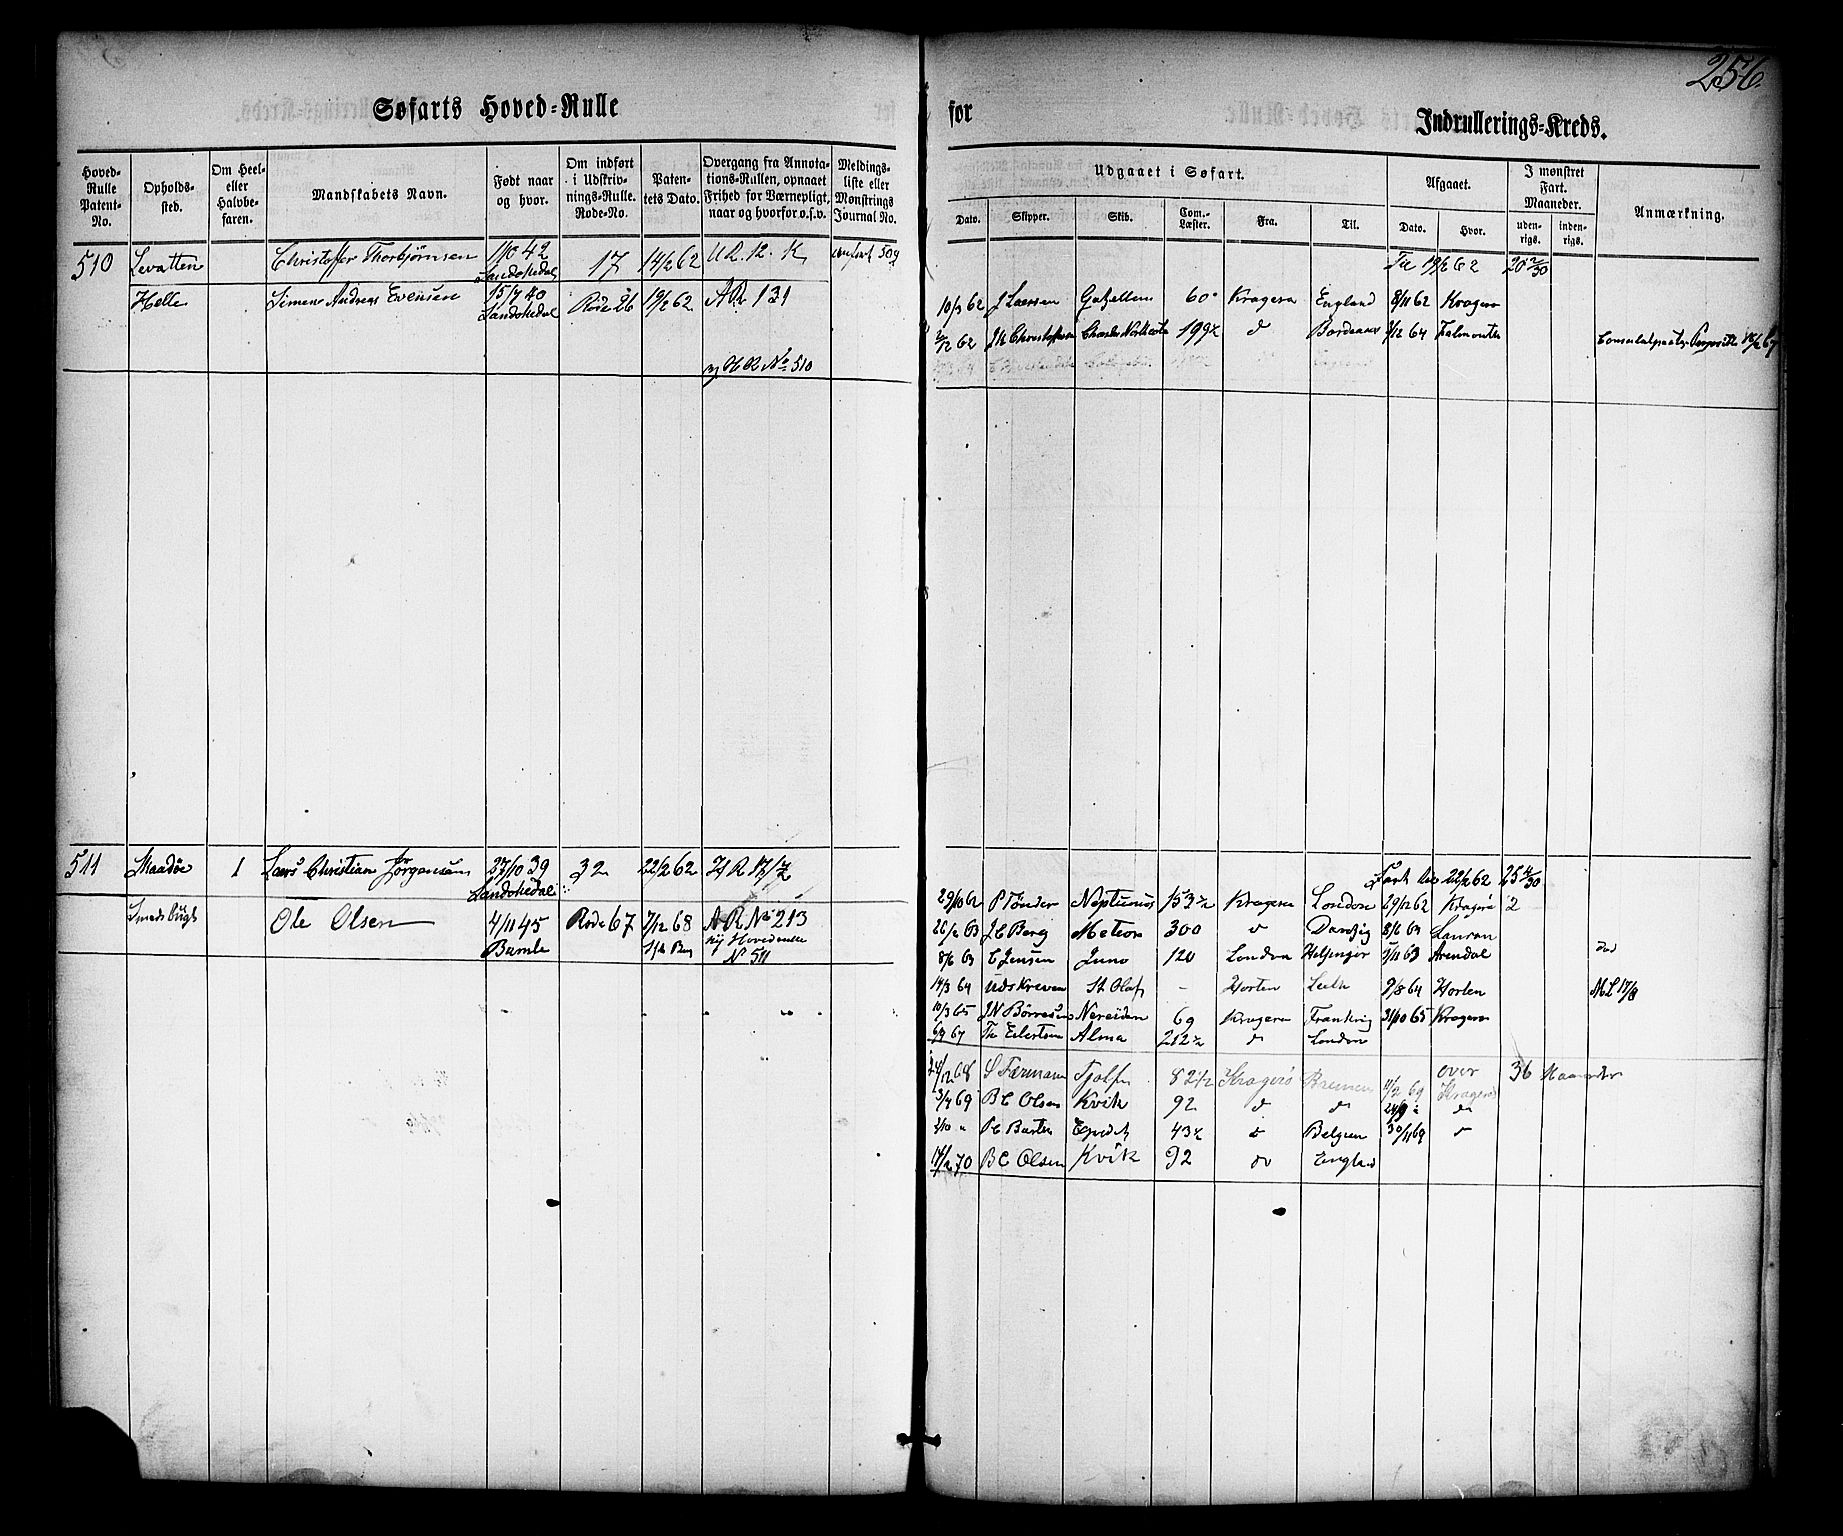 256.
Søfarts Hoved-Rulle
for
Indrullerings-Kreds.
Hoved-Rulle Patent-No.
Opholds-sted.
Om Heel- eller Halvbe-faren.
Mandskabets Navn.
Født naar og hvor.
Om indført i Udskriv-nings-Rulle. Rode-No.
Paten-tets Dato.
Overgang fra Annota-tions-Rullen, opnaaet Frihed for Værnepligt, naar og hvorfor o.s.v.
Meldings-liste eller Mønstrings Journal No.
Udgaaet i Søfart.
Dato. Skipper. Skib. Com.-Læster. Fra. Til.
Afgaaet.
Dato. Hvor.
I mønstret Fart. Maaneder.
uden-rigs. inden-rigs.
Anmærkning.
510 Levatten Christoffer Thorbjørnsen 1/10 42 Sandøkedal 17 14/2 62 U R. 12. K 509
Til 19/2 62 20 2/30
Helle Simen Andreas Evensen 15/7 40 Sandøkedal Rode 26 19/2 62 A R 131
10/3 62 J Larssen Gazellen 60 Kragerø England 8/11 62 Kragerø
2/12 62 J M Christophersen Charles Northcote 199½ d Bordeaux 1/12 64 Falmouth
ny H R No 510
511 Maadøe 1 Lars Christian Jørgensen 27/10 39 Sandøkedal 32 22/2 62 H R 17/7
Fart til 22/2 62 25 4/30
29/10 62 P Tønder Neptunus 153½ Kragerø London 29/12 62 Kragerø 2
Smedsbugt Ole Olsen 4/11 45 Bamle Rode 67 7/12 68 A R No 213 ny Hovedrulle No 511
26/2 63 J C Berg Meteor 300 d Danzig 8/6 63
8/6 63 C Jensen Juno 120 London Helsingør 3/11 63 Arendal
14/3 64 Udskreven St Olaf - Horten Leith 9/8 64 Horten ML 17/8
10/3 65 J N Børresen Nereiden 69 Kragerø Frankrig 31/10 65 Kragerø
67 Th Eilertsen Alma 212½ d London
24/12 68 S Færmann Fjalfn 82½ Kragerø Bremen 11/2 69 Kragerø
over 36 Maaneder
3/4 69 B C Olsen Kvik 92 d d 24/9 d
2/10 " P C Barth Expedit 43½ d Belgien 30/11 69 d
14/2 70 B C Olsen Kvik 92 do England